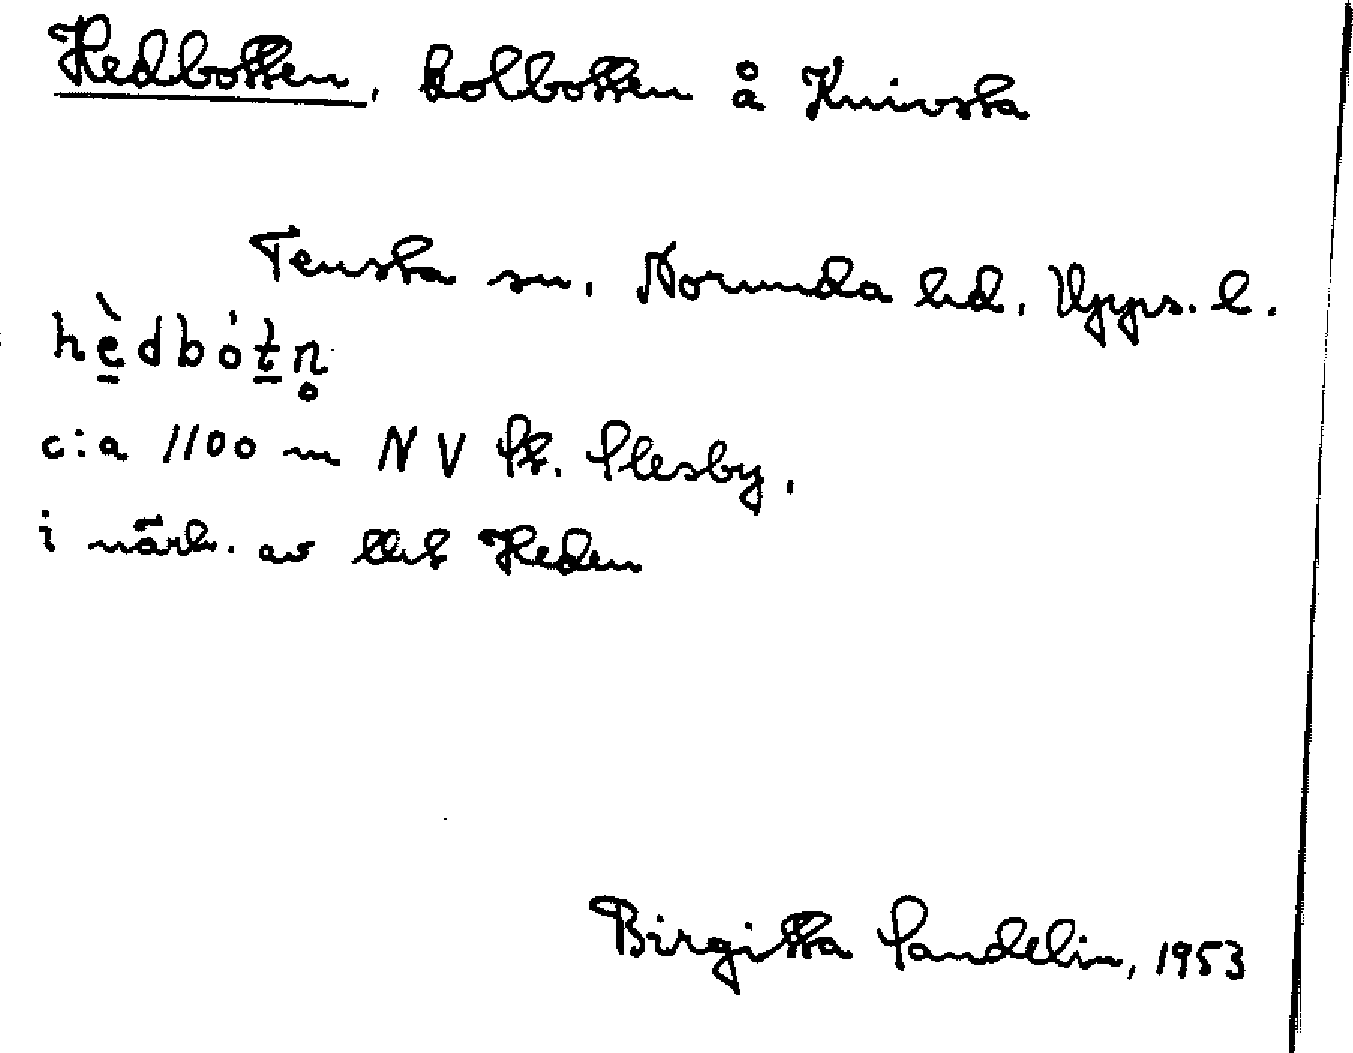 Hedbotten, kolbotten å Knivsta
Tensta sn. Norunda hd. Upps. l.
hè̱dbóṯn̥
c:a 1100 m NV St. Slesby,
i närh. av tht Heden
Birgitta Sandelin, 1953